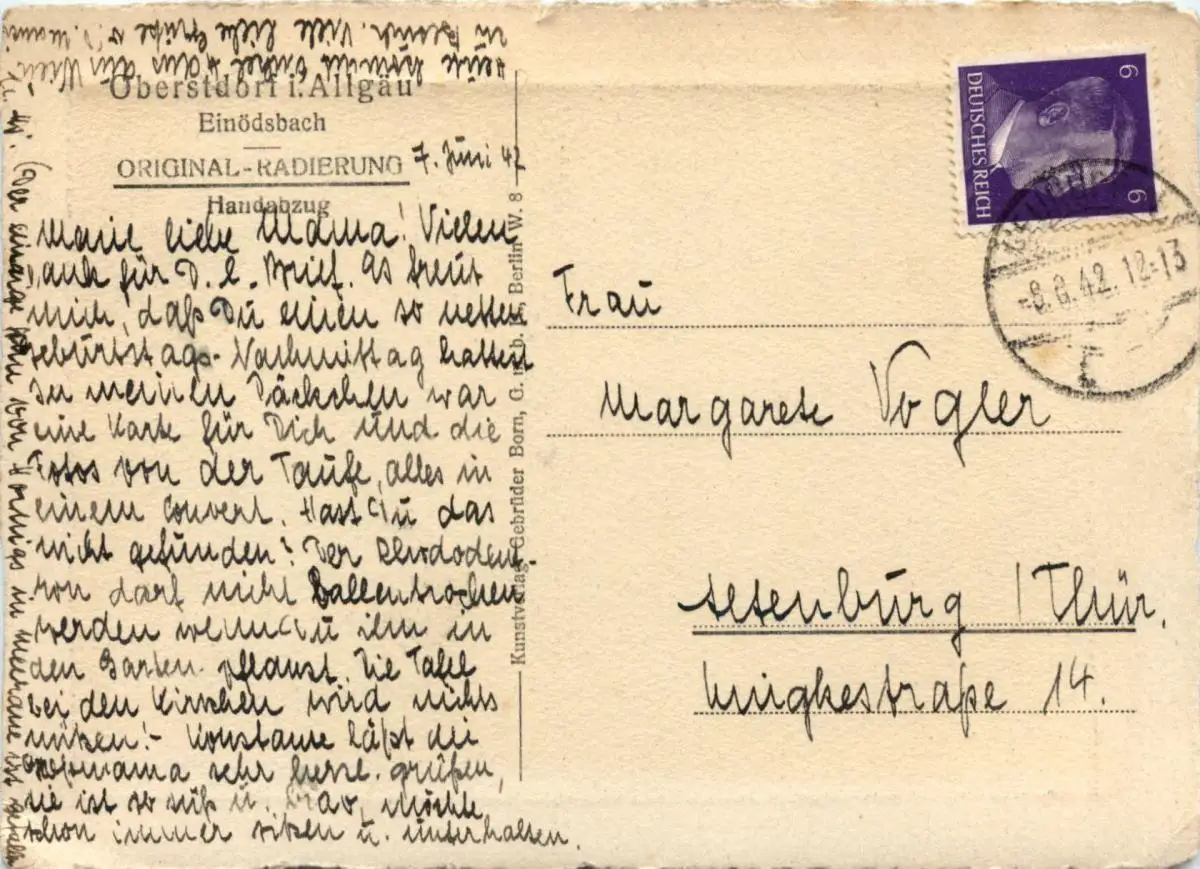 Oberstdorf i. Allgäu
Einödsbach
ORIGINAL-RADIERUNG
Handabzug
7. Juni 42
Meine liebe Mama! Vielen
Dank für D. l. Brief. Es freut
mich, daß Du einen so netten
Geburtstags-Nachmittag hattest
In meinem Päckchen war
eine Karte für Dich und die
Fotos von der Taufe, alles in
einem Couvert. Hast Du das
nicht gefunden? Der Rhododend-
ron darf nicht Ballentrocken
werden wenn Du ihn in
den Garten pflanzt. Die Tafel
bei den Kirschen wird nichts
nützen! - Konstanze läßt die
Großmama sehr herzl. grüßen,
sie ist so süß u. brav, möchte
schon immer sitzen u. unterhalten.
Der einzige von Hornigs in Meerane ist
Heute kommt Onkel Hans aus Wien
zu Besuch. Viele liebe Grüße v. D.
Kunstverlag Gebrüder Born, G. m. b. H., Berlin W. 8
DEUTSCHES REICH
6
6
-8.6.42.12-13
Frau
Margarete Vogler
Altenburg / Thür.
Zwingkestraße 14.